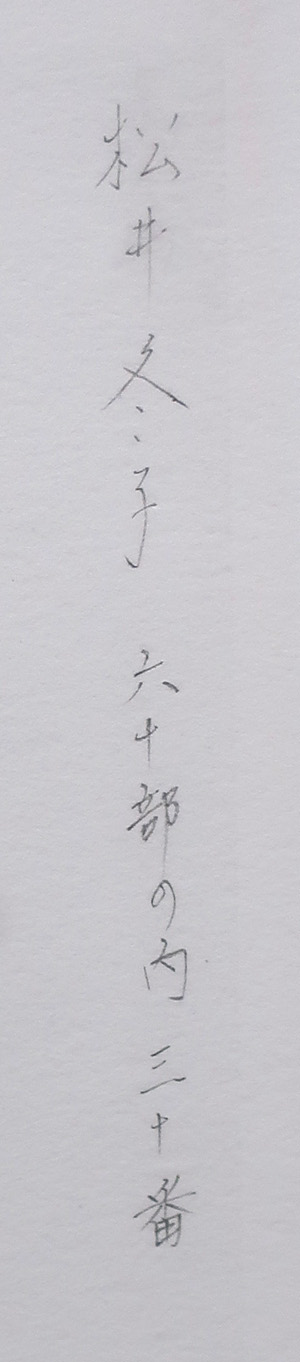 松井冬子 六十部の内 三十番